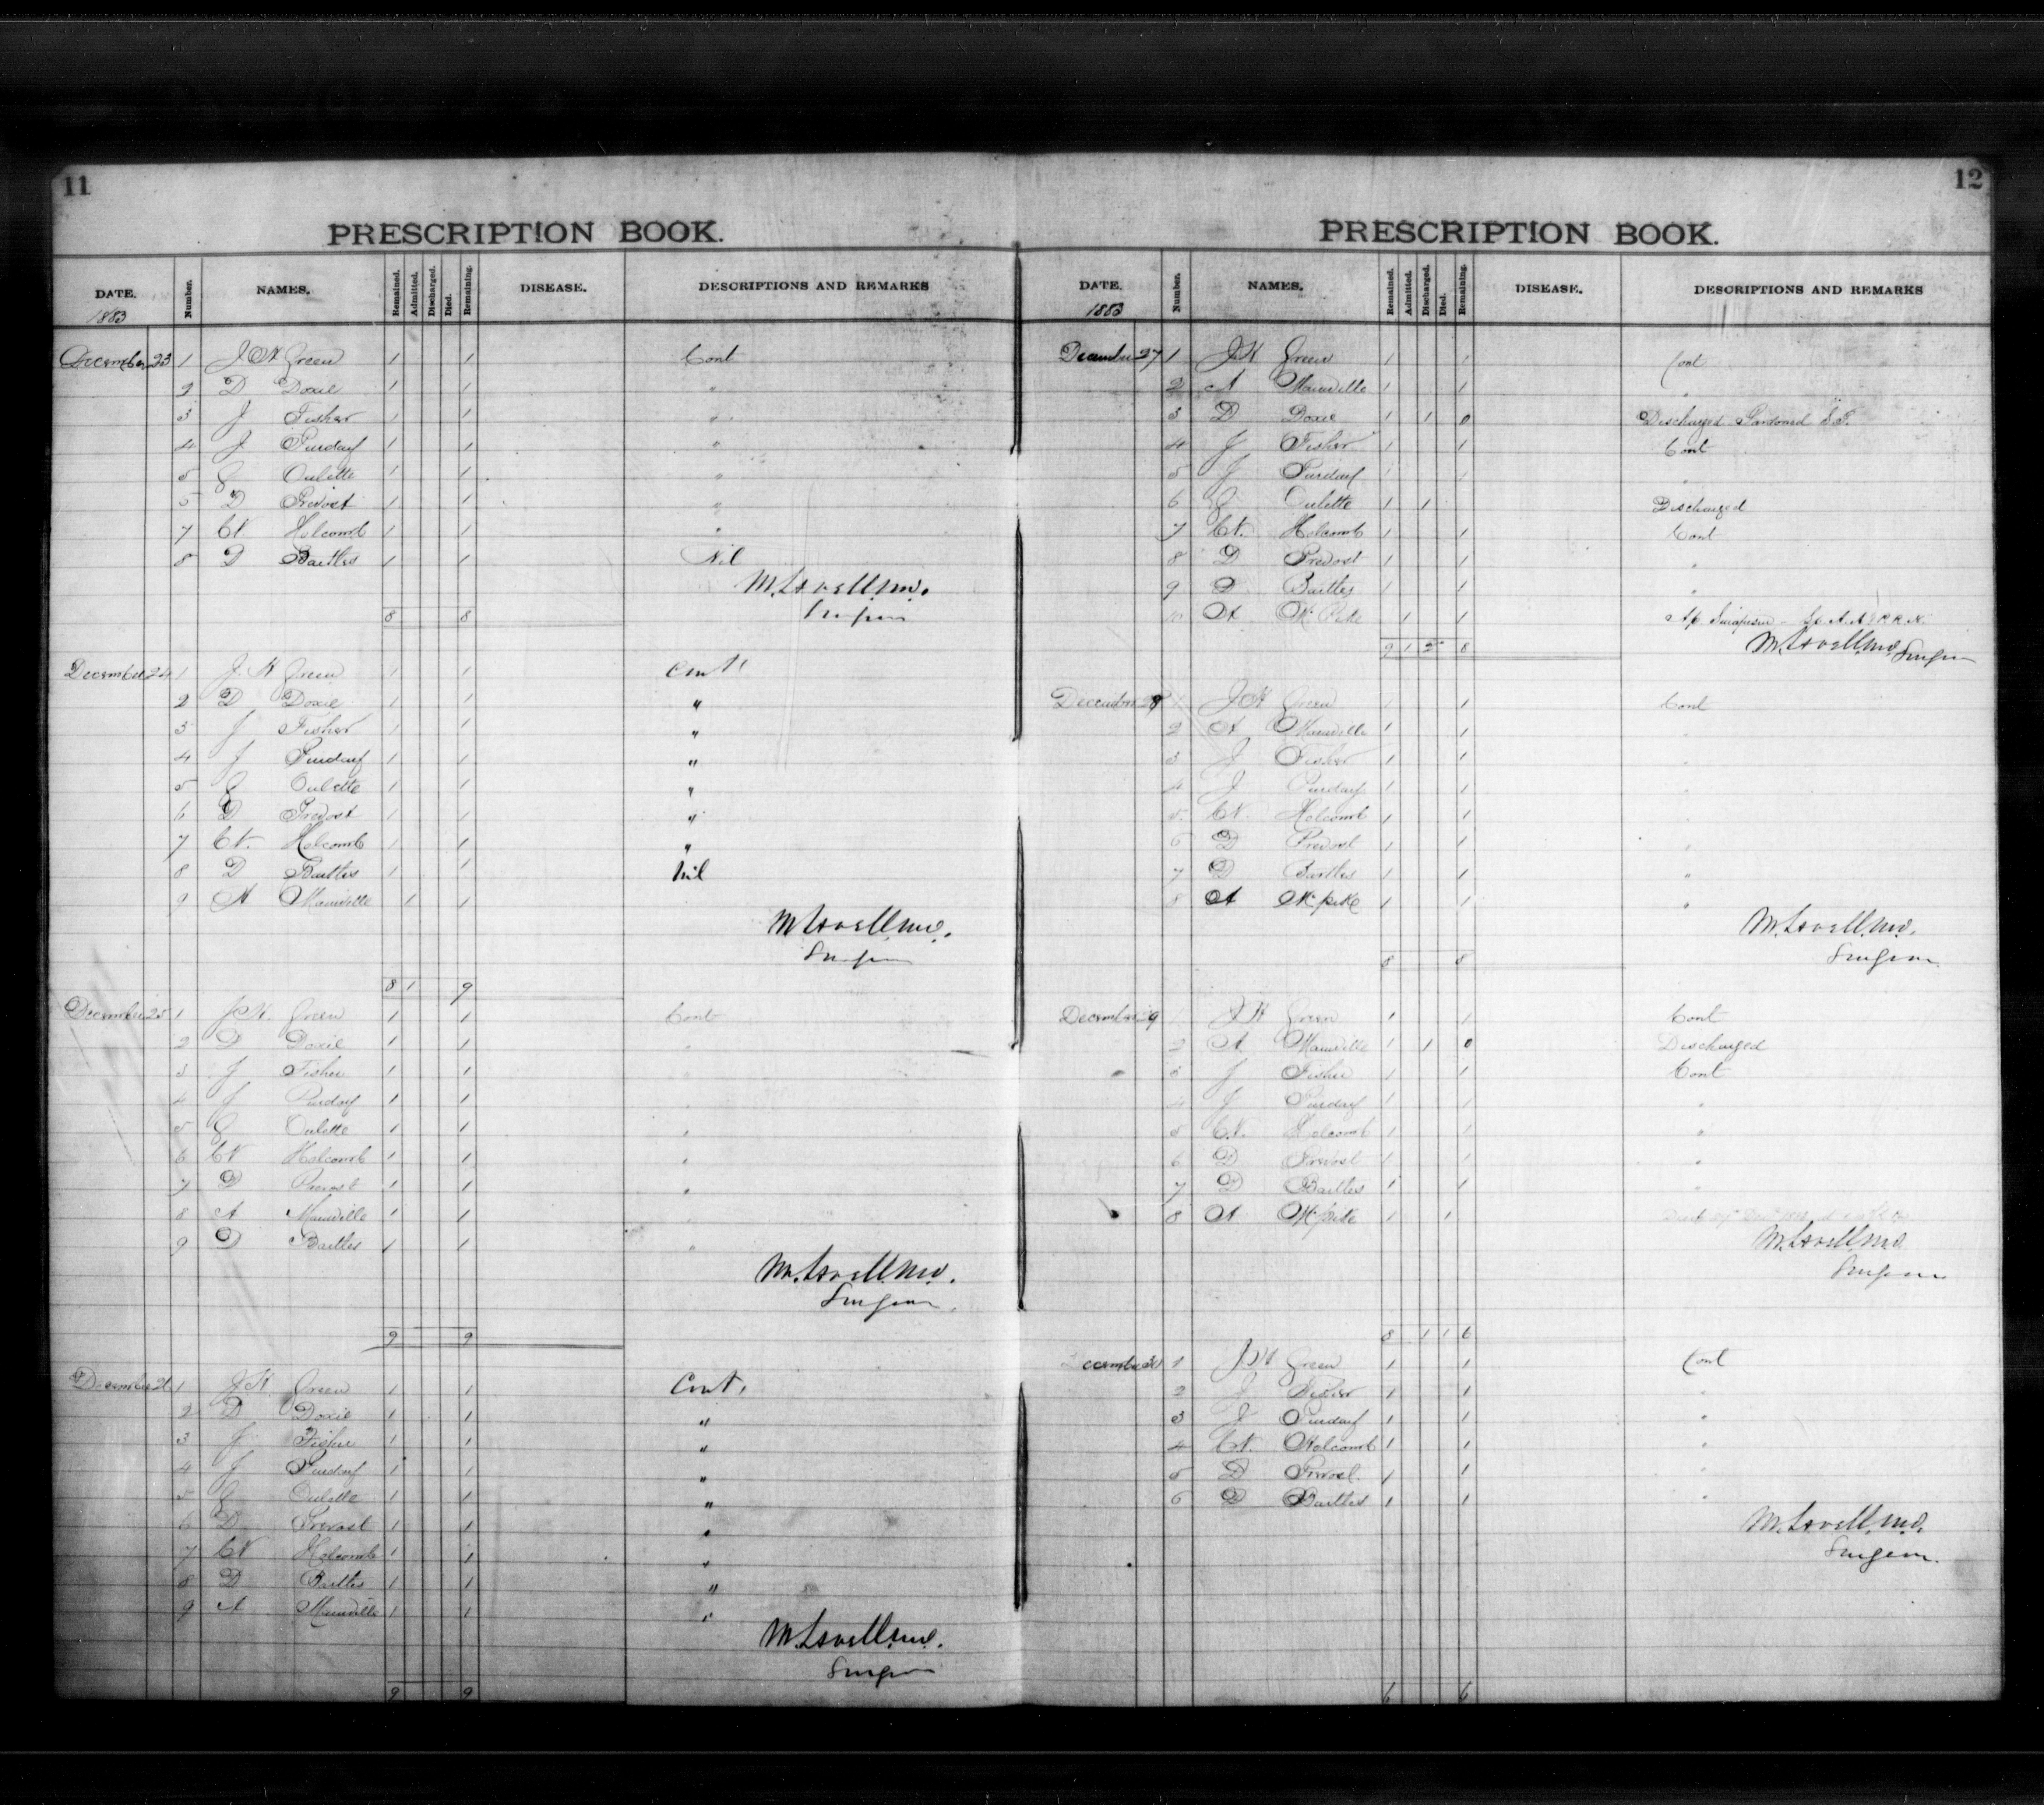 11
PRESCRIPTION BOOK.
DATE. Number. NAMES. Remained. Admitted. Discharged. Died. Remaining. DISEASE. DESCRIPTIONS AND REMARKS
1883
December 23 1 J W Green 1 1 Cont
2 D Doxie 1 1 "
3 J Fisher 1 1 "
4 J Purday 1 1 "
5 Oulette 1 1 "
5 D Prevost 1 1 "
7 Holcomb 1 1 "
8 D Bartles 1 1 Nil
M. Lavell M.D.
Surgeon
8 8
December 24 1 J. W Green 1 1 Cont
2 D Doxie 1 1 "
3 J Fisher 1 1 "
4 J Purday 1 1 "
5 Oulette 1 1 "
6 D Prevost 1 1 "
7 Holcomb 1 1 "
8 D Bartles 1 1 Nil
9 A Mainville 1 1
M Lavell M.D.
Surgeon
8 1 9
December 25 1 J W. Green 1 1 Cont
2 D Doxie 1 1 "
3 J Fisher 1 1 "
4 J Purday 1 1 "
5 Oulette 1 1 "
6 Holcomb 1 1 "
7 D Prevost 1 1 "
8 A Mainville 1 1 "
9 D Bartles 1 1 "
M. Lavell M.D.
Surgeon
9 9
December 26 1 J W. Green 1 1 Cont.
2 D Doxie 1 1 "
3 J Fisher 1 1 "
4 J Purday 1 1 "
5 Oulette 1 1 "
6 D Prevost 1 1 "
7 Holcomb 1 1 "
8 D Bartles 1 1 "
9 A Mainville 1 1 "
M Lavell M.D.
Surgeon
9 9
12
PRESCRIPTION BOOK.
DATE. Number. NAMES. Remained. Admitted. Discharged. Died. Remaining. DISEASE. DESCRIPTIONS AND REMARKS
1883
December 27 1 J W Green 1 1 Cont
2 A Mainville 1 1 "
3 D Doxie 1 1 0 Discharged Pardoned
4 J Fisher 1 1 Cont
5 J Purday 1 1 "
6 Oulette 1 1 Discharged
7 Holcomb 1 1 Cont
8 D Prevost 1 1 "
9 D Bartles 1 1 "
10 A McPike 1 1
M Lavell M.D. Surgeon
9 1 2 8
December 28 1 J W Green 1 1 Cont
2 A Mainville 1 1 "
3 J Fisher 1 1 "
4 J Purday 1 1 "
5 Holcomb 1 1 "
6 D Prevost 1 1 "
7 D Bartles 1 1 "
8 A McPike 1 1 "
M. Lavell M.D.
Surgeon
8 8
December 29 1 J W Green 1 1 Cont
2 A Mainville 1 1 0 Discharged
3 J Fisher 1 1 Cont
4 J Purday 1 1 "
5 Holcomb 1 1 "
6 D Prevost 1 1 "
7 D Bartles 1 1 "
8 A McPike 1 1
M. Lavell M.D
Surgeon
8 1 1 6
December 30 1 J W Green 1 1 Cont
2 J Fisher 1 1 "
3 J Purday 1 1 "
4 Holcomb 1 1 "
5 D Prevost 1 1 "
6 D Bartles 1 1 "
M. Lavell M.D.
Surgeon.
6 6